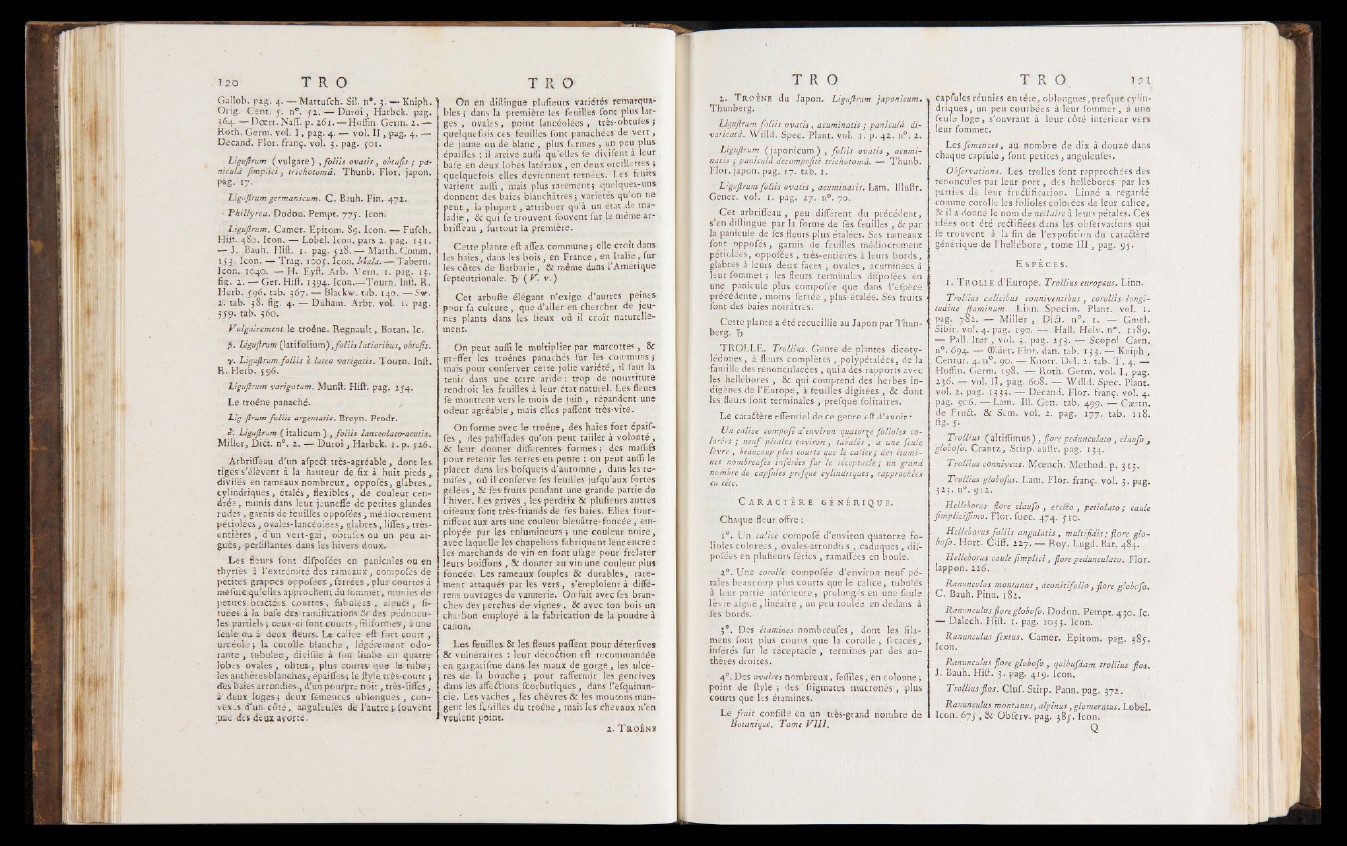 120 T R O
Gallob. pag. 4. — Mattuſch. Sil. n°. 3. — Kniph.
Orig. Cent. 5. n°. 52. — Duroi, Harbck. pag.
364. — Dœrr. Naſſ. p. 261. — Hoffm. Germ. 2. —
Roth. Germ. vol. I, pag. 4. — vol. II, pag. 4. —
Decand. Flor. franç. vol. 3. pag. 501.
Liguſtrum (vulgare), foliis ovatis, obtuſis; pa-
niculâ ſimplici, trichotomâ. Thunb. Flor. japon.
pag. 17.
Liguſtrum germanicum. C. Bauh. Pin. 472.
Phillyrea. Dodon. Pempt. 775. Icon.
Liguſtrum. Camer. Epitom. 89. Icon. — Fuſch.
Hiſt. 480. Icon. — Lobel. Icon. pars 2. pag. 131.
— J. Bauh. Hiſt. 1. pag. 528. — Matth. Comm.
153. Icon. — Trag. 1005. Icon. Mala. — Tabern.
Icon. 1040. — H. Eyſt. Arb. Vern. 1. pag. 13.
fig. 2. — Ger. Hiſt. 1394. Icon. — Tourn. Inſt. R.
Herb. 596. tab. 367. — Blackw. tab. 140. — Sw.
2. tab. 38. fig. 4. — Duham. Arbr. vol. 1. pag.
359. tab. 360.
Vulgairement le troêne. Regnault, Botan. Ic.
β. Liguſtrum (latifolium), foliis latioribus, obtuſis.
γ. Liguſtrum foliis è luteo variegatis. Tourn. Inſt.
R. Herb. 596.
Liguſtrum variegatum. Munſt. Hiſt. pag. 254.
Le troêne panaché.
Liguſtrum foliis argentatis. Breyn. Prodr.
δ. Liguſtrum (italicum), foliis lanceolato-acutis.
Miller, Dict. n°. 2. — Duroi, Harbck. 1. p. 526.
Arbriſſeau d'un aſpect très-agréable, dont les
tiges s'élèvent à la hauteur de ſix à huit pieds,
diviſés en rameaux nombreux, oppoſés, glabres,
cylindriques, étalés, flexibles, de couleur cen-
drée, munis dans leur jeuneſſe de petites glandes
rudes, garnis de feuilles oppoſées, médiocrement
pétiolées, ovales-lancéolées, glabres, liſſes, très-
entières, d'un vert-gai, obtuſes ou un peu ai-
guës, perſiſtantes dans les hivers doux.
Les fleurs ſont diſpoſées en panicules ou en
thyrſes à l'extrémité des rameaux, compoſés de
petites grappes oppoſées, ſerrées, plus courtes à
meſure qu'elles approchent du ſommet, munies de
petites bractées courtes, ſubulées, aiguës, ſi-
tuées à la baſe des ramifications & des pédoncu-
les partiels; ceux-ci ſont courts, filiformes, à une
ſeule ou à deux fleurs. Le calice eſt fort court,
urcéolé; la corolle blanche, légérement odo-
rante, tubulée, diviſée à ſon limbe en quatre
lobes ovales, obtus, plus courts que le tube;
les anthères blanches, épaiſſes; le ſtyle très-court;
des baies arrondies, d'un pourpre noir, très-liſſes,
à deux loges; deux ſemences oblongues, con-
vexes d'un côté, anguleuſes de l'autre; ſouvent
une des deux avorte.
T R O
On en diſtingue pluſieurs variétés remarqua-
bles; dans la première les feuilles ſont plus lar-
ges, ovales, point lancéolées, très-obtuſes;
quelquefois ces feuilles ſont panachées de vert,
de jaune ou de blanc, plus fermes, un peu plus
épaiſſes; il arrive auſſi qu'elles ſe diviſent à leur
baſe en deux lobes latéraux, en deux oreillettes;
quelquefois elles deviennent ternées. Les fruits
varient auſſi, mais plus rarement; quelques-uns
donnent des baies blanchâtres; variétés qu'on ne
peut, la plupart, attribuer qu'à un état de ma-
ladie, & qui ſe trouvent ſouvent ſur le même ar-
briſſeau, ſurtout la première.
Cette plante eſt aſſez commune; elle croît dans
les haies, dans les bois, en France, en Italie, ſur
les côtes de Barbarie, & même dans l'Amérique
ſeptentrionale. ♄ (V. v.)
Cet arbuſte élégant n'exige d'autres peines
pour ſa culture, que d'aller en chercher de jeu-
nes plants dans les lieux où il croît naturelle-
ment.
On peut auſſi le multiplier par marcottes, &
greffer les troênes panachés ſur les communs;
mais pour conſerver cette jolie variété, il faut la
tenir dans une terre aride: trop de nourriture
rendroit les feuilles à leur état naturel. Les fleurs
ſe montrent vers le mois de juin, répandent une
odeur agréable, mais elles paſſent très-vîte.
On forme avec le troêne, des haies fort épaiſ-
ſes, des paliſſades qu'on peut tailler à volonté,
& leur donner différentes formes; des maſſifs
pour retenir les terres en pente: on peut auſſi le
placer dans les boſquets d'automne, dans les re-
miſes, où il conſerve ſes feuilles juſqu'aux fortes
gelées, & ſes fruits pendant une grande partie de
l'hiver. Les grives, les perdrix & pluſieurs autres
oiſeaux ſont très-friands de ſes baies. Elles four-
niſſent aux arts une couleur bleuâtre-foncée, em-
ployée par les enlumineurs; une couleur noire,
avec laquelle les chapeliers fabriquent leur encre:
les marchands de vin en font uſage pour frelater
leurs boiſſons, & donner au vin une couleur plus
foncée. Les rameaux ſouples & durables, rare-
ment attaqués par les vers, s'emploient à diffé-
rens ouvrages de vannerie. On fait avec ſes bran-
ches des perches de vignes, & avec ſon bois un
charbon employé à la fabrication de la poudre à
canon.
Les feuilles & les fleurs paſſent pour déterſives
& vulnéraires: leur décoction eſt recommandée
en gargariſme dans les maux de gorge, les ulcè-
res de la bouche; pour raffermir les gencives
dans les affections ſcorbutiques, dans l'eſquinan-
cie. Les vaches, les chèvres & les moutons man-
gent les feuilles du troêne, mais les chevaux n'en
veulent point.
2. TROÊNE
T R O
2. TROÊNE du Japon. Liguſtrum japonicum.
Thunberg.
Liguſtrum foliis ovatis, acuminatis; paniculâ di-
varicatâ. Willd. Spec. Plant. vol. 1. p. 42. n°. 2.
Liguſtrum (japonicum), foliis ovatis, acumi-
natis; paniculâ decompoſitè trichotomâ. — Thunb.
Flor. japon. pag. 17. tab. 1.
Liguſtrum foliis ovatis, acuminatis. Lam. Illuſtr.
Gener. vol. 1. pag. 27. n°. 70.
Cet arbriſſeau, peu différent du précédent,
s'en diſtingue par la forme de ſes feuilles, & par
la panicule de ſes fleurs plus étalées. Ses rameaux
ſont oppoſés, garnis de feuilles médiocrement
pétiolées, oppoſées, très-entières à leurs bords,
glabres à leurs deux faces, ovales, acuminées à
leur ſommet; les fleurs terminales diſpoſées en
une panicule plus compoſée que dans l'eſpèce
précédente, moins ſerrée, plus étalée. Ses fruits
ſont des baies noirâtres.
Cette plante a été recueillie au Japon par Thun-
berg. ♄
TROLLE. Trollius. Genre de plantes dicoty-
lédones, à fleurs complètes, polypétalées, de la
famille des renonculacées, qui a des rapports avec
les hellébores, & qui comprend des herbes in-
digènes de l'Europe, à feuilles digitées, & dont
les fleurs ſont terminales, preſque ſolitaires.
Le caractère eſſentiel de ce genre eſt d'avoir:
Un calice compoſé d'environ quatorze folioles co-
lorées; neuf pétales environ, tubulés, à une ſeule
lèvre, beaucoup plus courts que le calice; des étami-
nes nombreuſes inſérées ſur le réceptacle; un grand
nombre de capſules preſque cylindriques, rapprochées
en tête.
CARACTÈRE GÉNÉRIQUE.
Chaque fleur offre:
1°. Un calice compoſé d'environ quatorze fo-
lioles colorées, ovales-arrondies, caduques, diſ-
poſées en pluſieurs ſéries, ramaſſées en boule.
2°. Une corolle compoſée d'environ neuf pé-
tales beaucoup plus courts que le calice, tubulés
à leur partie inférieure, prolongés en une ſeule
lèvre aiguë, linéaire, un peu roulée en dedans à
ſes bords.
3°. Des étamines nombreuſes, dont les fila-
mens ſont plus courts que la corolle, ſétacés,
inſérés ſur le réceptacle, terminés par des an-
thères droites.
4°. Des ovaires nombreux, ſeſſiles, en colonne;
point de ſtyle; des ſtigmates mucronés, plus
courts que les étamines.
Le fruit conſiſte en un très-grand nombre de
Botanique. Tome VIII.
T R O 121
capſules réunies en tête, oblongues, preſque cylin-
driques, un peu courbées à leur ſommet, à une
ſeule loge, s'ouvrant à leur côté intérieur vers
leur ſommet.
Les ſemences, au nombre de dix à douze dans
chaque capſule, ſont petites, anguleuſes.
Obſervations. Les trolles ſont rapprochées des
renoncules par leur port, des hellébores par les
parties de leur fructification. Linné a regardé
comme corolle les folioles colorées de leur calice,
& il a donné le nom de nectaire à leurs pétales. Ces
idées ont été rectifiées dans les obſervations qui
ſe trouvent à la fin de l'expoſition du caractère
générique de l'hellébore, tome III, pag. 95.
ESPÈCES.
1. TROLLE d'Europe. Trollius europæus. Linn.
Trollius calicibus conniventibus, corollis longi-
tudine ſtaminum. Linn. Specim. Plant. vol. 1.
pag. 782. — Miller, Dict. n°. 1. — Gmel.
Sibir. vol. 4. pag. 190. — Hall. Helv. n°. 1189.
— Pall. Iter, vol. 3. pag. 253. — Scopol. Carn.
n°. 694. — Œder. Flor. dan. tab. 133. — Kniph,
Centur. 4. n°. 90. — Knorr. Del. 2. tab. T. 4. —
Hoffm. Germ. 198. — Roth. Germ. vol. I, pag.
236. — vol. II, pag. 608. — Willd. Spec. Plant.
vol. 2. pag. 1333. — Decand. Flor. franç. vol. 4.
pag. 906. — Lam. Ill. Gen. tab. 499. — Gærtn.
de Fruct. & Sem. vol. 2. pag. 177. tab. 118.
fig. 5.
Trollius (altiſſimus), flore pedunculato, clauſo,
globoſo. Crantz, Stirp. auſtr. pag. 134.
Trollius connivens. Mœnch. Method. p. 313.
Trollius globoſus. Lam. Flor. franç. vol. 3. pag.
323. n°. 912.
Helleborus flore clauſo, erecto, petiolato; caule
ſimpliciſſimo. Flor. ſuec. 474. 510.
Helleborus foliis angulatis, multifidis; flore glo-
boſo. Hort. Cliff. 227. — Roy. Lugd. Bat. 484.
Helleborus caule ſimplici, flore pedunculato. Flor.
lappon. 226.
Ranunculus montanus, aconitifolio, flore globoſo.
C. Bauh. Pinn. 182.
Ranunculus flore globoſo. Dodon. Pempt. 430. Ic.
— Dalech. Hiſt. 1. pag. 1033. Icon.
Ranunculus flexus. Camer. Epitom. pag. 385.
Icon.
Ranunculus flore globoſo, quibuſdam trollius flos.
J. Bauh. Hiſt. 3. pag. 419. Icon.
Trollius flos. Cluſ. Stirp. Pann. pag. 372.
Ranunculus montanus, alpinus, glomeratus. Lobel.
Icon. 675, & Obſerv. pag. 385. Icon.
Q